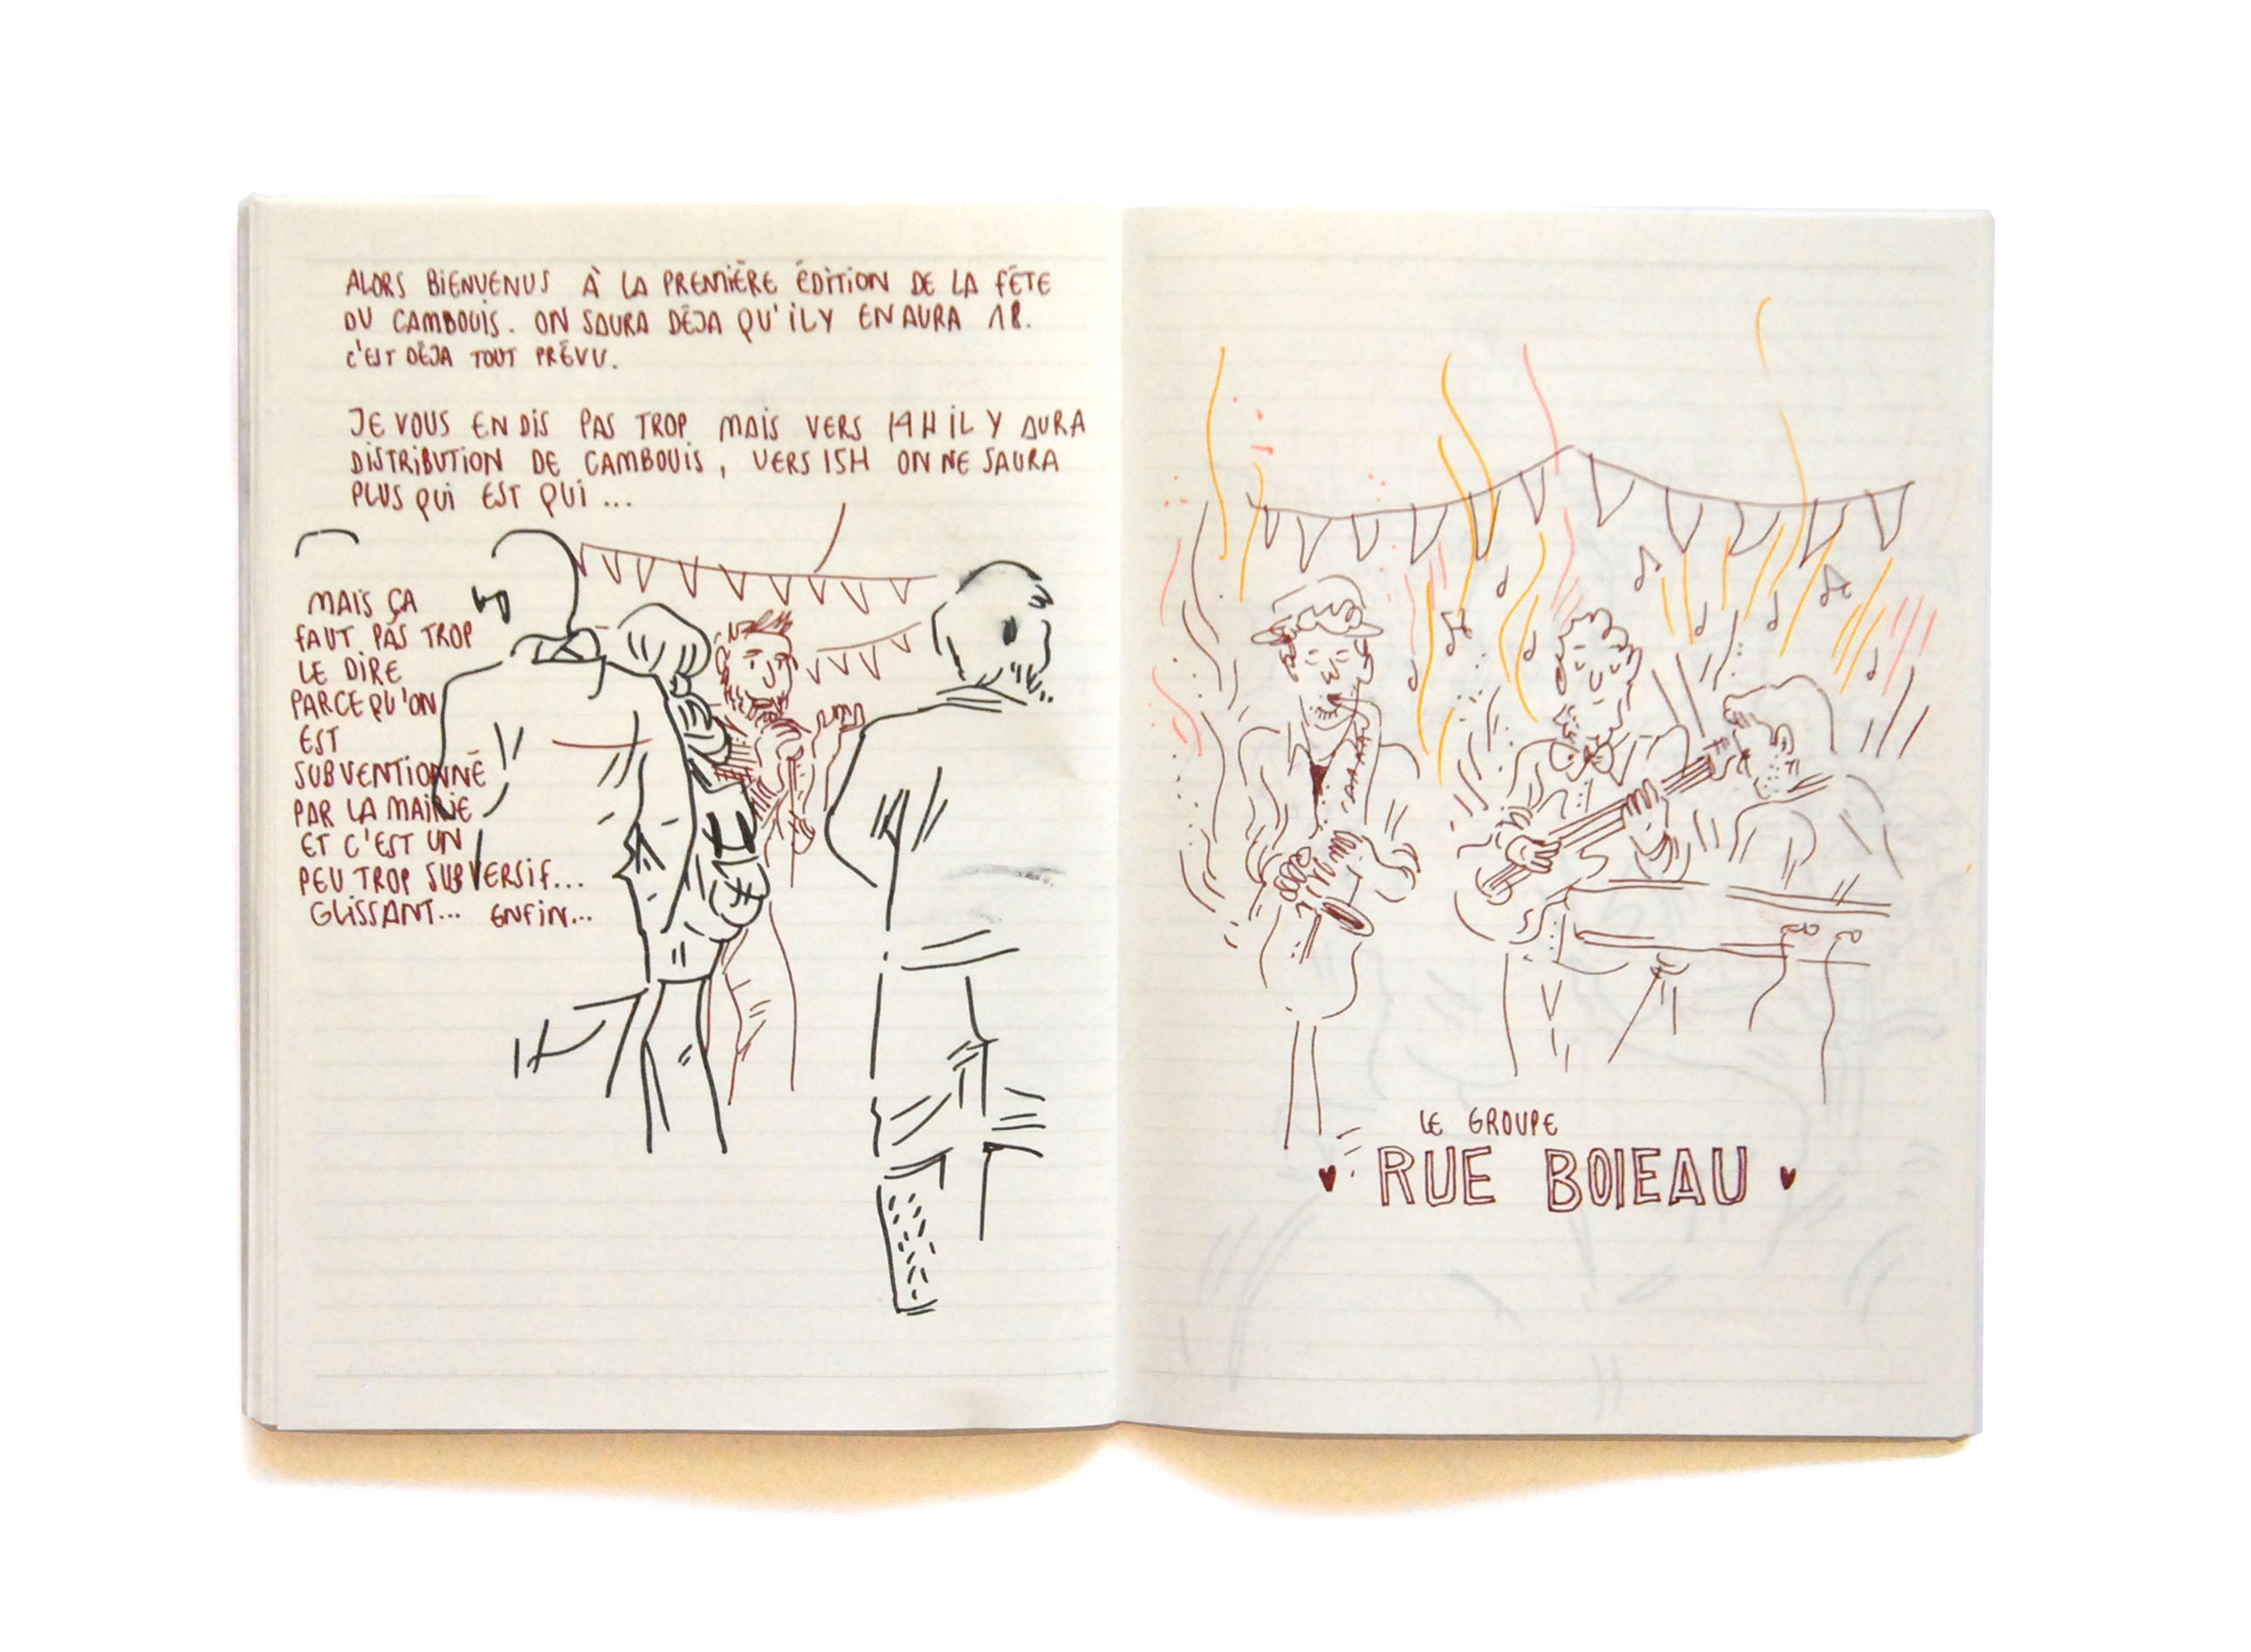 ALORS BIENVENUS À LA PREMIÈRE ÉDITION DE LA FÊTE
DU CAMBOUIS. ON SAURA DÉJA QU'IL Y EN AURA 18.
C'EST DÉJA TOUT PRÉVU.
JE VOUS EN DIS PAS TROP MAIS VERS 14H IL Y AURA
DISTRIBUTION DE CAMBOUIS, VERS 15H ON NE SAURA
PLUS QUI EST QUI...
MAIS ÇA
FAUT PAS TROP
LE DIRE
PARCEQU'ON
EST
SUBVENTIONNÉ
PAR LA MAIRIE
ET C'EST UN
PEU TROP SUBVERSIF...
GLISSANT... ENFIN...
LE GROUPE
RUE BOIEAU